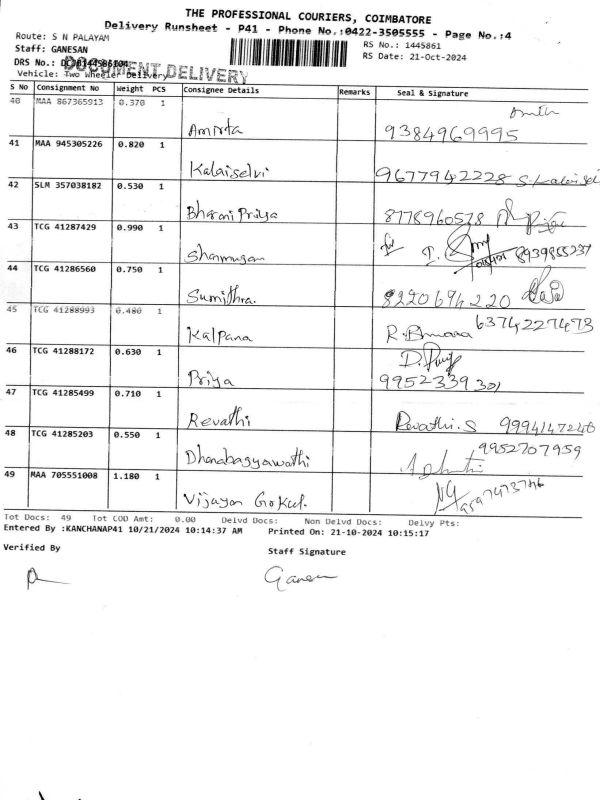 THE PROFESSIONAL COURIERS, COIMBATORE
Delivery Runsheet - P41 - Phone No.:0422-3505555 - Page No.:4
Route: S N PALAYAM
RS No.: 1445861
Staff: GANESAN
RS Date: 21-Oct-2024
DRS No.:
DOCUMENT DELIVERY
Vehicle: Two Wheeler Delivery
S No Consignment No Weight PCS Consignee Details Remarks Seal & Signature
40 MAA 867365913 0.370 1
Amrita 9384969995
41 MAA 945305226 0.820 1
Kalaiselvi 9677942228 S. Kalaisel
42 SLM 357038182 0.530 1
Bharani Priya 8778960578
43 TCG 41287429 0.990 1
Shanmugan
44 TCG 41286560 0.750 1
Sumithra. 8220694220
45 TCG 41288993 0.480 1
Kalpana 6374227473
46 TCG 41288172 0.630 1
Priya 9952339301
47 TCG 41285499 0.710 1
Revathi Revathi.S 9994147246
48 TCG 41285203 0.550 1
9952707959
Dhanabagyawathi
49 MAA 705551008 1.180 1
Vijayan Gokul.
Tot Docs: 49 Tot COD Amt: 0.00 Delvd Docs: Non Delvd Docs: Delvy Pts:
Entered By :KANCHANAP41 10/21/2024 10:14:37 AM Printed On: 21-10-2024 10:15:17
Verified By Staff Signature
Ganesan